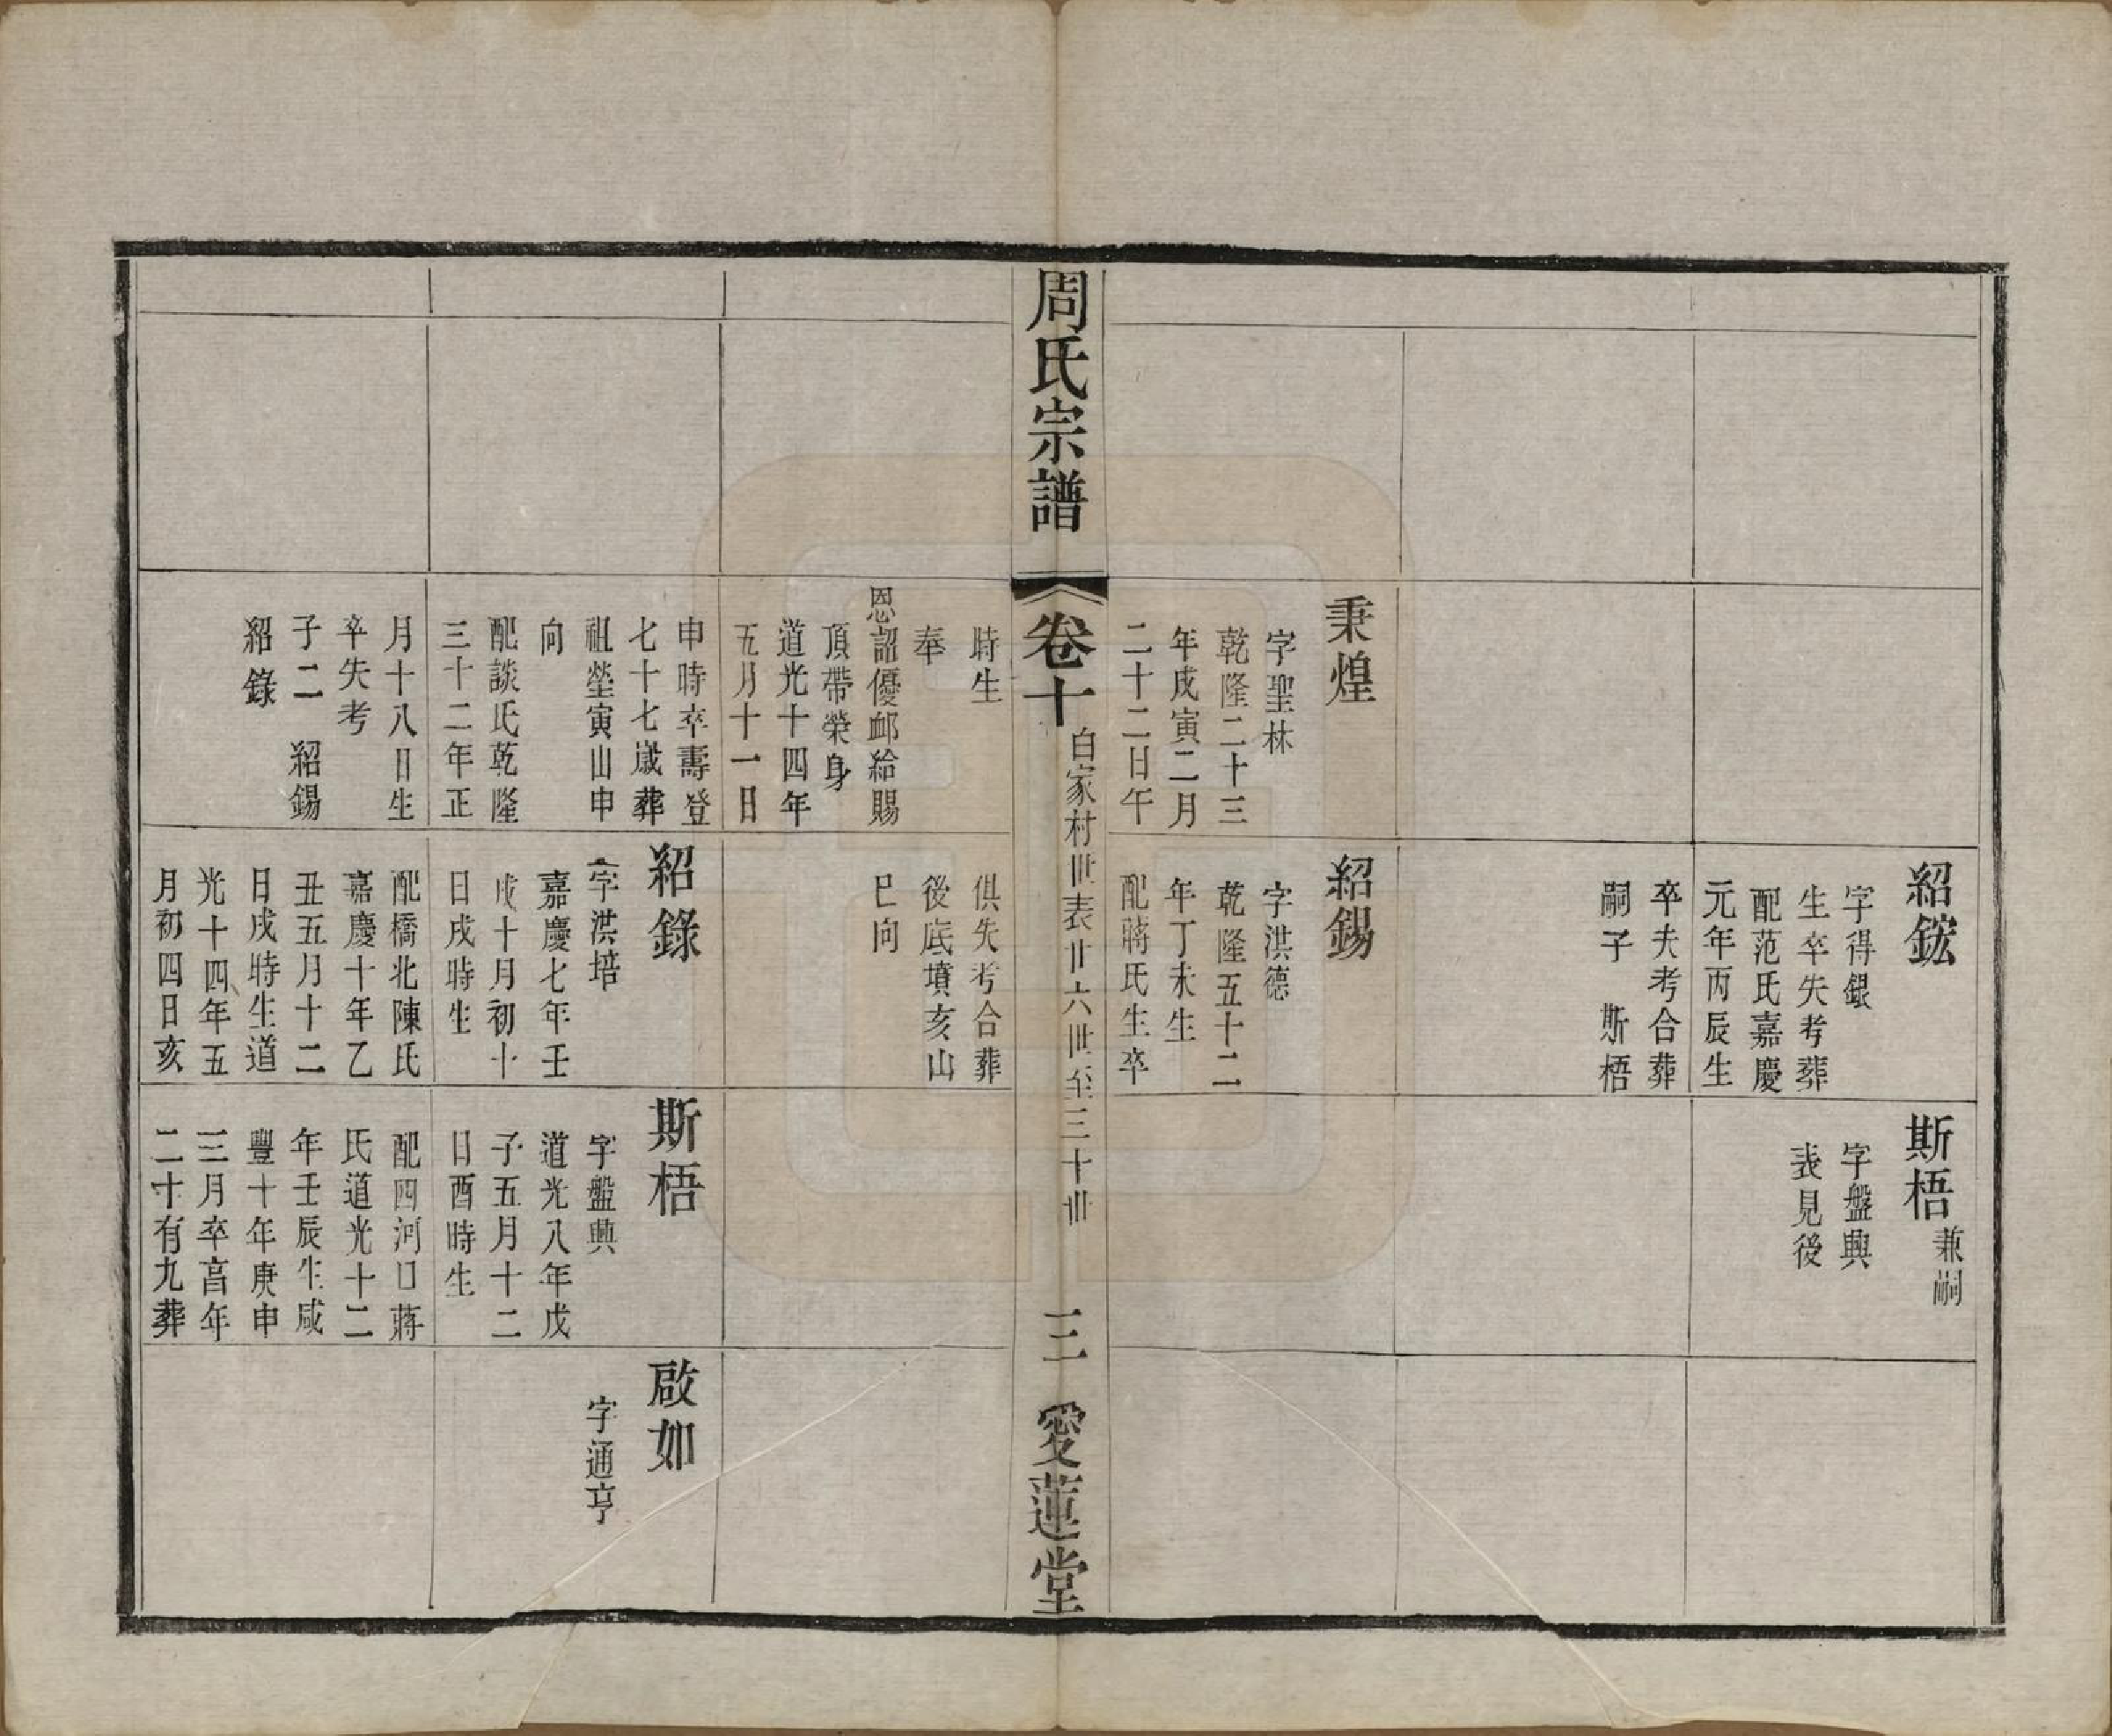 紹鋐
字得銀
生卒失考葬
配范氏嘉慶
元年丙辰生
卒失考合葬
嗣子　斯梧
斯梧兼嗣
字盤興
表見後
秉煌
字聖林
乾隆二十三
年戊寅二月
二十二日午
紹錫
字洪德
乾隆五十二
年丁未生
配蔣氏生卒
周氏宗譜
卷十
白家村世表廿六世至三十世
三
愛蓮堂
時生
奉
恩詔優邮給賜
頂帶榮身
道光十四年
五月十一日
申時卒壽登
七十七歲葬
祖塋寅山申
向
配談氏乾隆
三十二年正
月十八日生
卒失考
子二　紹錫
紹錄
俱失考合葬
後底墳亥山
巳向
紹錄
字洪培
嘉慶七年壬
戌十月初十
日戌時生
配橋北陳氏
嘉慶十年乙
丑五月十二
日戌時生道
光十四年五
月初四日亥
斯梧
字盤興
道光八年戊
子五月十二
日酉時生
配四河口蔣
氏道光十二
年壬辰生咸
豐十年庚申
三月卒亯年
二十有九葬
啟如
字通亨